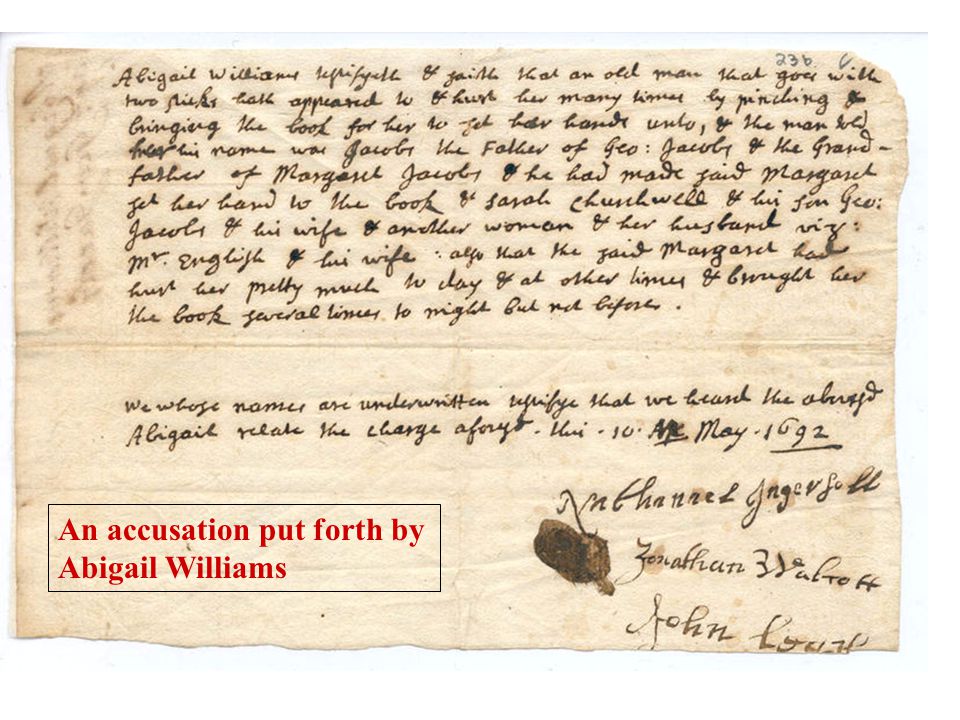 236 6
Abigail Williams testifyeth & saith that an old man that goes with
two sticks hath appeared to & hurt her many times by pinching &
bringing the book for her to set her hands unto, & the man told
her his name was Jacobs the Father of Geo: Jacobs & the Grand-
father of Margaret Jacobs & he had made said Margaret
set her hand to the book & Sarah Churchwell & his son Geo:
Jacobs & his wife & another woman & her husband viz:
Mr. English & his wife : also that the said Margaret had
hurt her pretty much to day & at other times & brought her
the book several times to night but not before.
we whose names are underwritten testifye that we heard the abovesd
Abigail relate the charge aforesd - this - 10. May - 1692
Nathaniel Ingersoll
Jonathan Walcott
John
An accusation put forth by
Abigail Williams